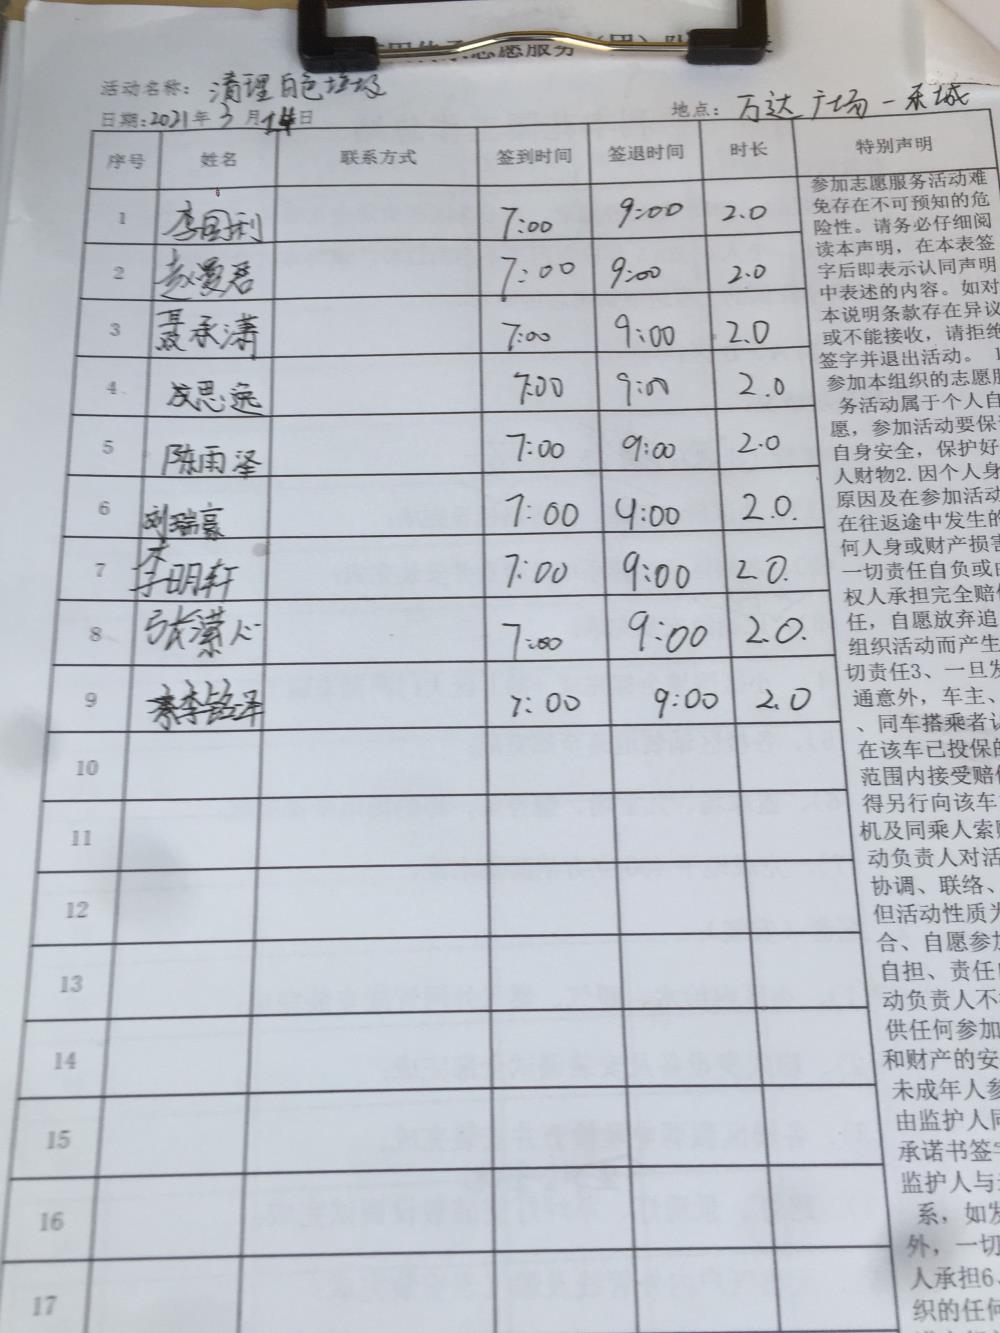 志愿服务（团）队
活动名称：清理白色垃圾
日期：2021年3月14日 地点：万达广场—禾城
序号 姓名 联系方式 签到时间 签退时间 时长 特别声明
1 李国利 7:00 9:00 2.0
2 赵曼君 7:00 9:00 2.0
3 聂承潇 7:00 9:00 2.0
4 成思远 7:00 9:00 2.0
5 陈雨泽 7:00 9:00 2.0
6 刘瑞豪 7:00 9:00 2.0.
7 明轩 7:00 9:00 2.0.
8 张潆心 7:00 9:00 2.0.
9 李铭泽 7:00 9:00 2.0
10
11
12
13
14
15
16
17
参加志愿服务活动难
免存在不可预知的危
险性。请务必仔细阅
读本声明，在本表签
字后即表示认同声明
中表述的内容。如对
本说明条款存在异议
或不能接收，请拒绝
签字并退出活动。 1
参加本组织的志愿服
务活动属于个人自
愿，参加活动要保
自身安全，保护好
人财物2.因个人身
原因及在参加活动
在往返途中发生的
何人身或财产损害
一切责任自负或由
权人承担完全赔
任，自愿放弃追
组织活动而产生
切责任3、一旦发
通意外，车主、
、同车搭乘者认
在该车已投保的
范围内接受赔
得另行向该车
机及同乘人索
动负责人对活
协调、联络、
但活动性质为
合、自愿参加
自担、责任
动负责人不
供任何参加
和财产的安
未成年人参
由监护人同
承诺书签字
监护人与
系，如发
外，一切
人承担6、
织的任何